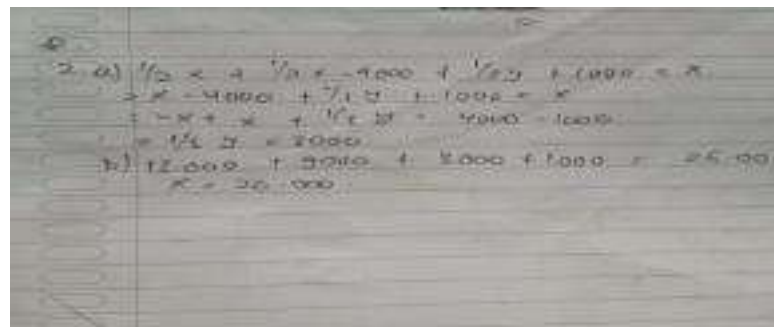 2. a) 1/2 x + 1/2 x - 4000 + 1/2 y + 1000 = x
= x - 4000 + 1/2 y + 1000 = x
= -x + x + 1/2 y = 4000 - 1000
= 1/2 y = 3000
b) 12.000 + 9000 + + 1000 =
x = 20.000